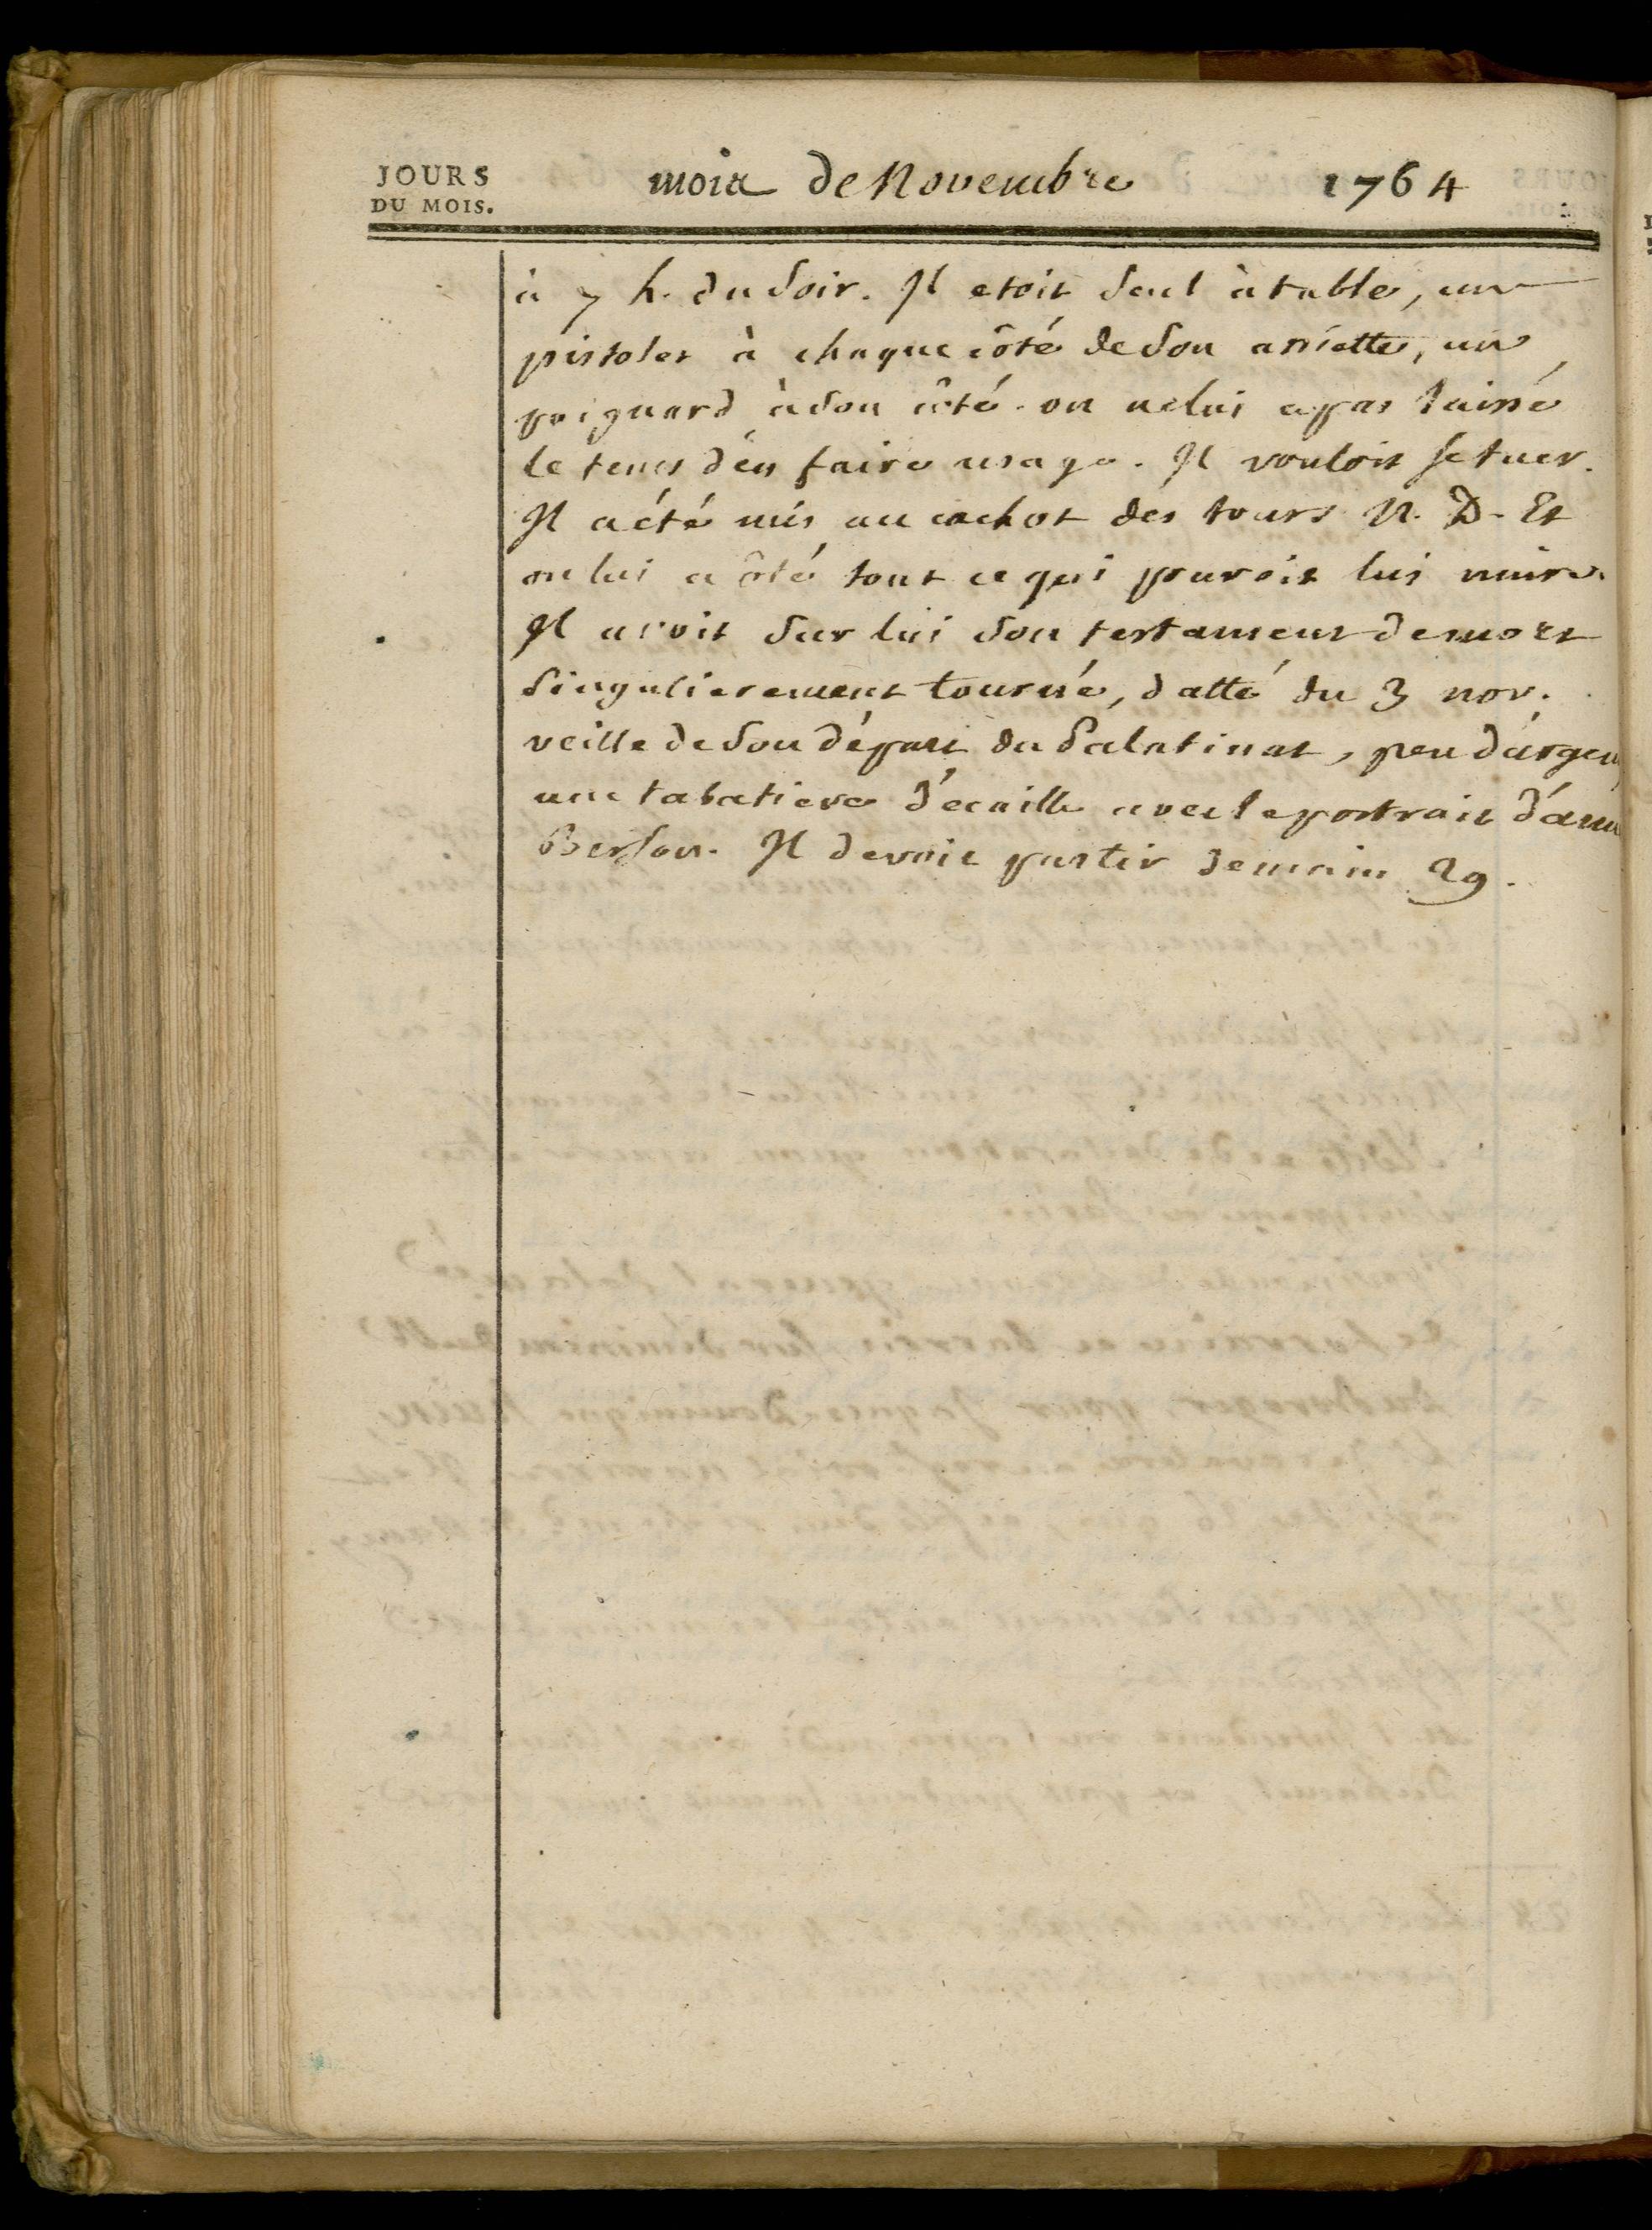 JOURS
DU MOIS.
mois de Novembre 1764
à 7 h. du soir. Il etoit seul à table, un
pistolet à chaque côté de son assiette, un
poignard à son côté. on ne lui a pas laissé
le tems d'en faire usage. Il vouloit se tuer.
Il a été mis au cachot des tours N. D. Et
on lui a ôté tout ce qui pouvoit lui nuire.
Il avoit sur lui son testament de mort
singulierement tourné, datté du 3 nov.
veille de son départ du Palatinat, peu d'argen
une tabatiere d'ecaille avec le portrait
Berson. Il devoit partir demain 29.